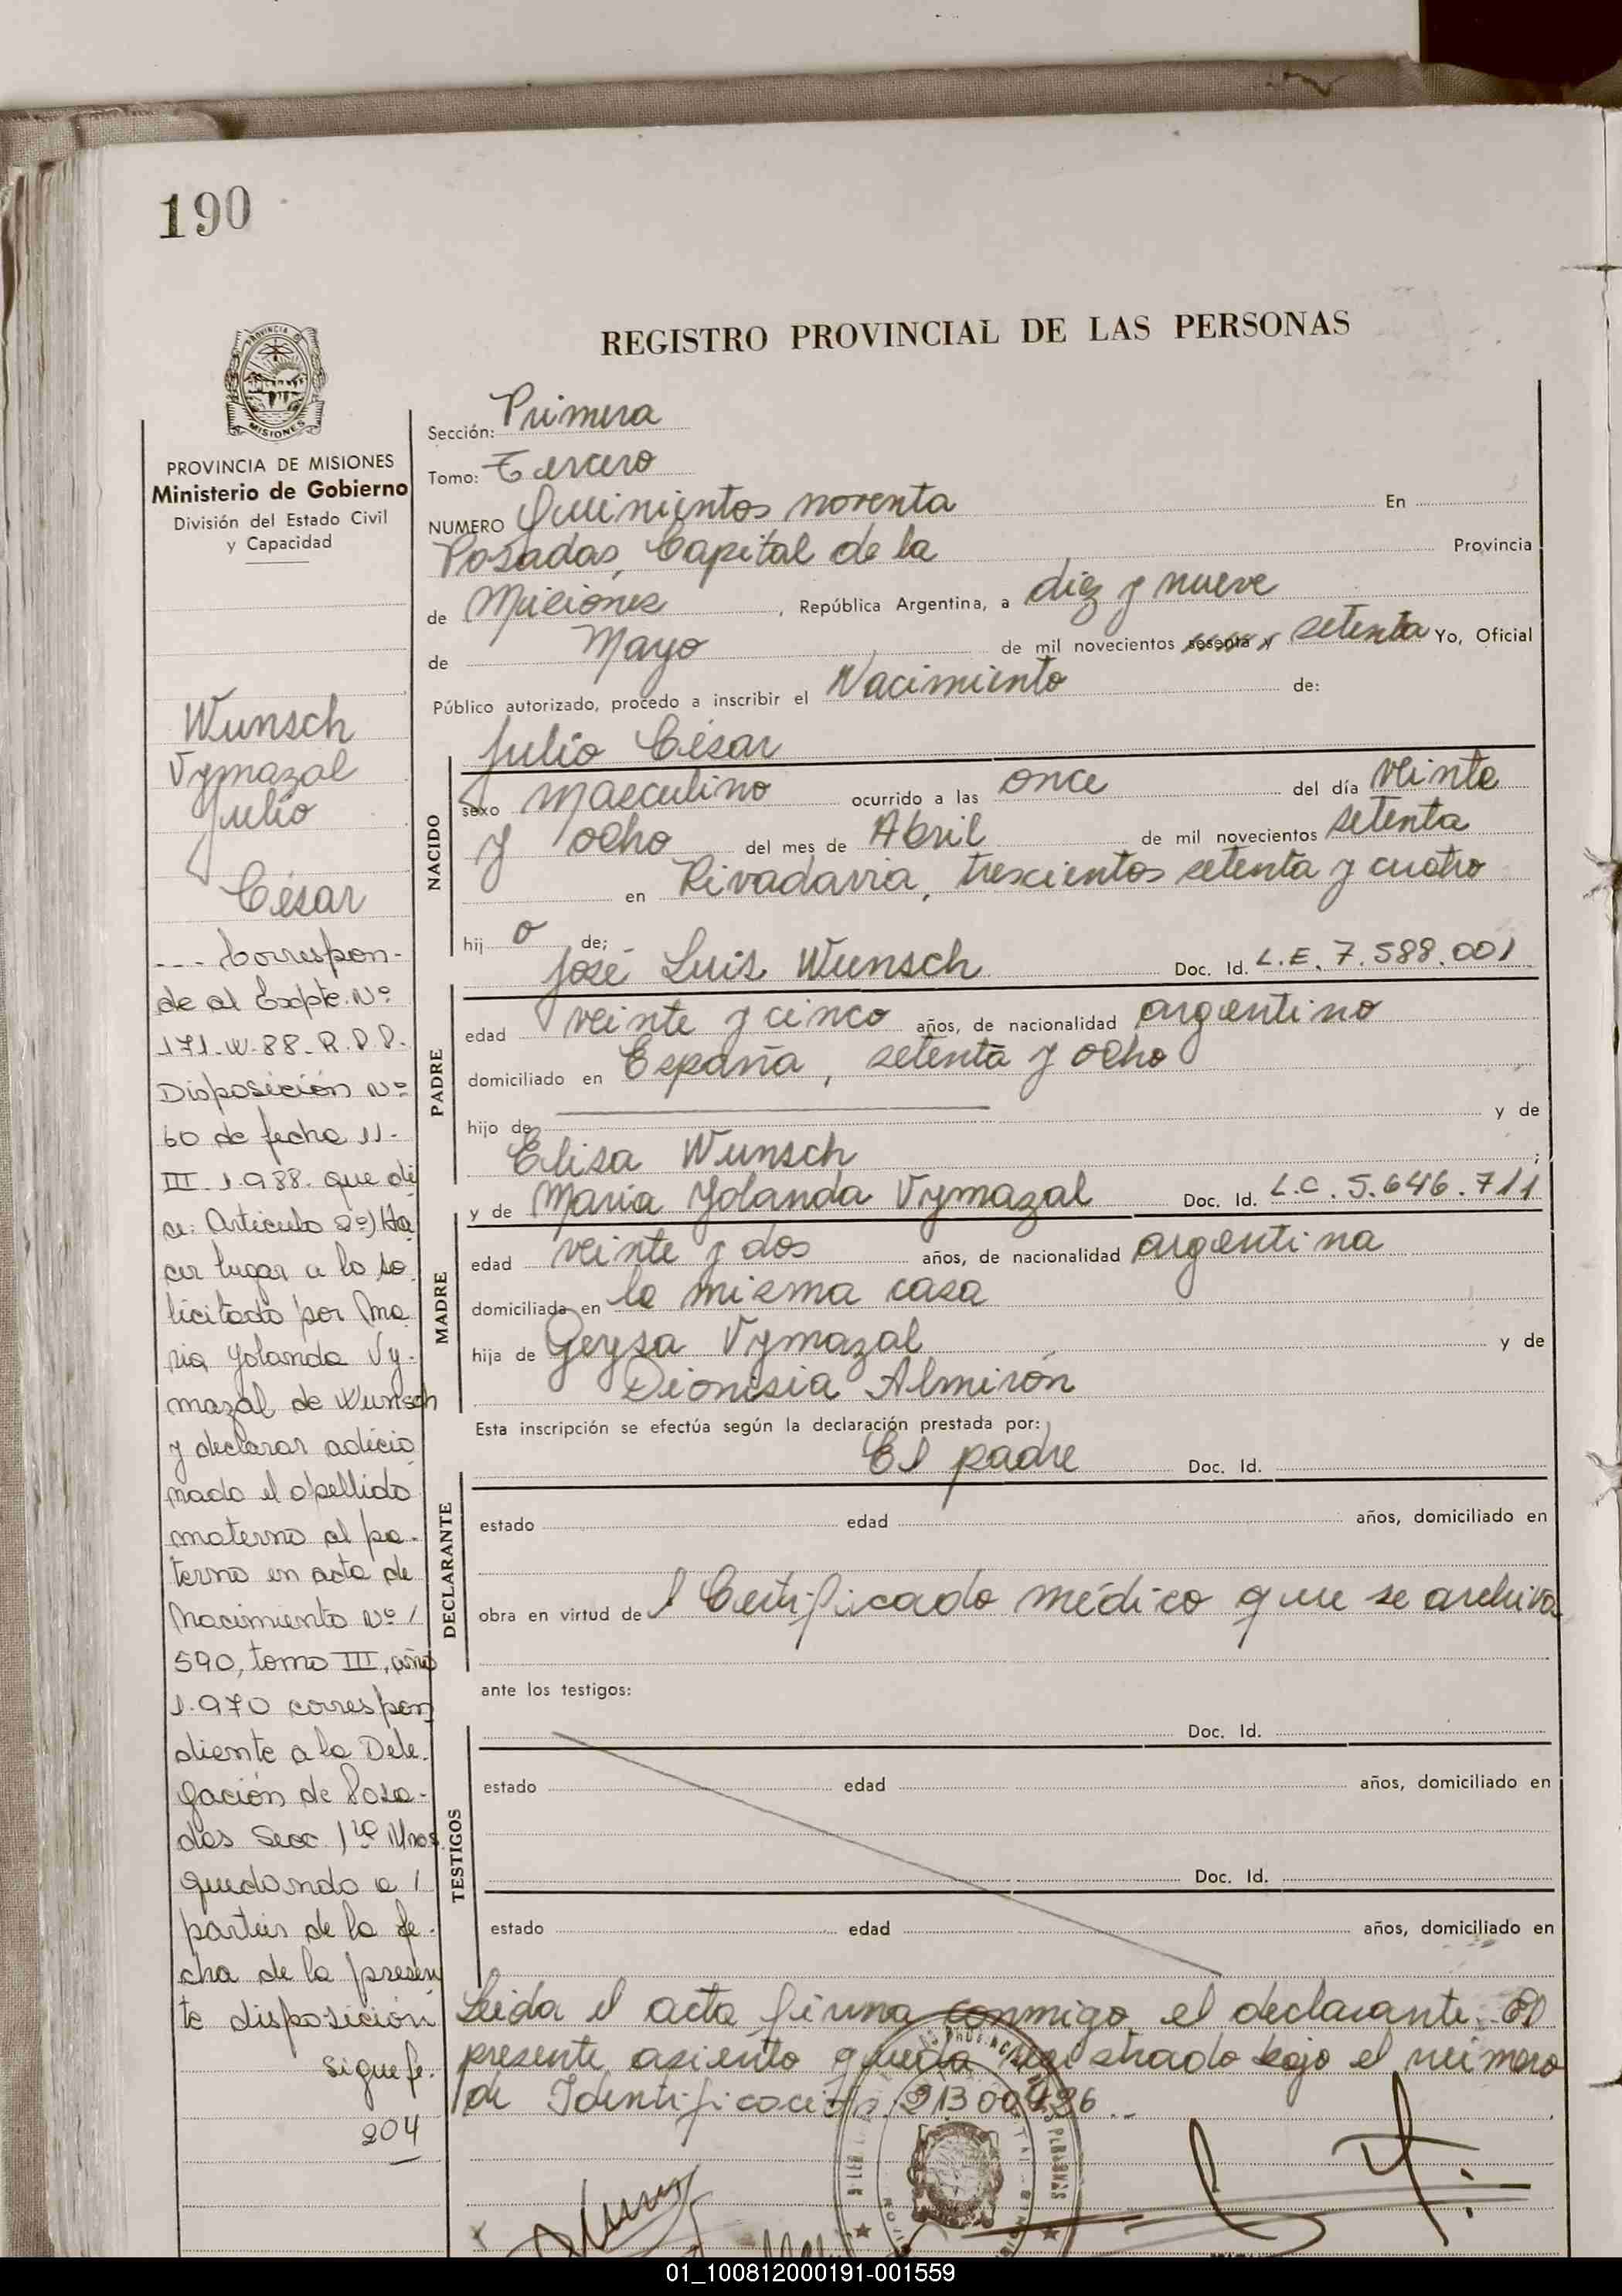 190
REGISTRO PROVINCIAL DE LAS PERSONAS
PROVINCIA DE MISIONES
Ministerio de Gobierno
División del Estado Civil
y Capacidad
Wunsch
Vymazal
Julio
César
--- Correspon-
de al Expte. Nº
171-W-88-R.P.P.
Disposición Nº
60 de fecha 11-
III-1.988. que di
ce: Artículo 2º) Ha
cer lugar a lo so
licitado por Ma
ria Yolanda Vy-
mazal de Wunsch
y declarar adicio
nado el apellido
materno al pa-
terno en acta de
Nacimiento Nº/
590, tomo III, año
1.970 correspon
diente a la Dele-
gación de Posa-
das Secc 1ra Mnes.
quedando a /
partir de la fe-
cha de la presen
te disposición
sigue fe.
204
Sección: Primera
Tomo: Tercero
NUMERO Quinientos noventa En
Posadas, Capital de la Provincia
de Misiones, República Argentina, a diez y nueve
de Mayo de mil novecientos sesenta y setenta Yo, Oficial
Público autorizado, procedo a inscribir el Nacimiento de:
Julio César
NACIDO
sexo masculino ocurrido a las once del día veinte
y ocho del mes de Abril de mil novecientos setenta
en Rivadavia, trescientos setenta y cuatro
hijo de;
José Luis Wunsch Doc. Id. L.E. 7.588.001
PADRE
edad veinte y cinco años, de nacionalidad argentino
domiciliado en España, setenta y ocho
hijo de y de
Elisa Wunsch ;
y de Maria Yolanda Vymazal Doc. Id. L.C. 5.646.711
MADRE
edad veinte y dos años, de nacionalidad argentina
domiciliada en la misma casa
hija de Geysa Vymazal y de
Dionisia Almirón
Esta inscripción se efectúa según la declaración prestada por:
El padre Doc. Id.
DECLARANTE
estado edad años, domiciliado en
obra en virtud de l Certificado médico que se archiva
ante los testigos:
Doc. Id.
TESTIGOS
estado edad años, domiciliado en
Doc. Id.
estado edad años, domiciliado en
Leida el acta firma conmigo el declarante. El
presente asiento queda registrado bajo el número
de Identificación 21300426..
01_100812000191-001559